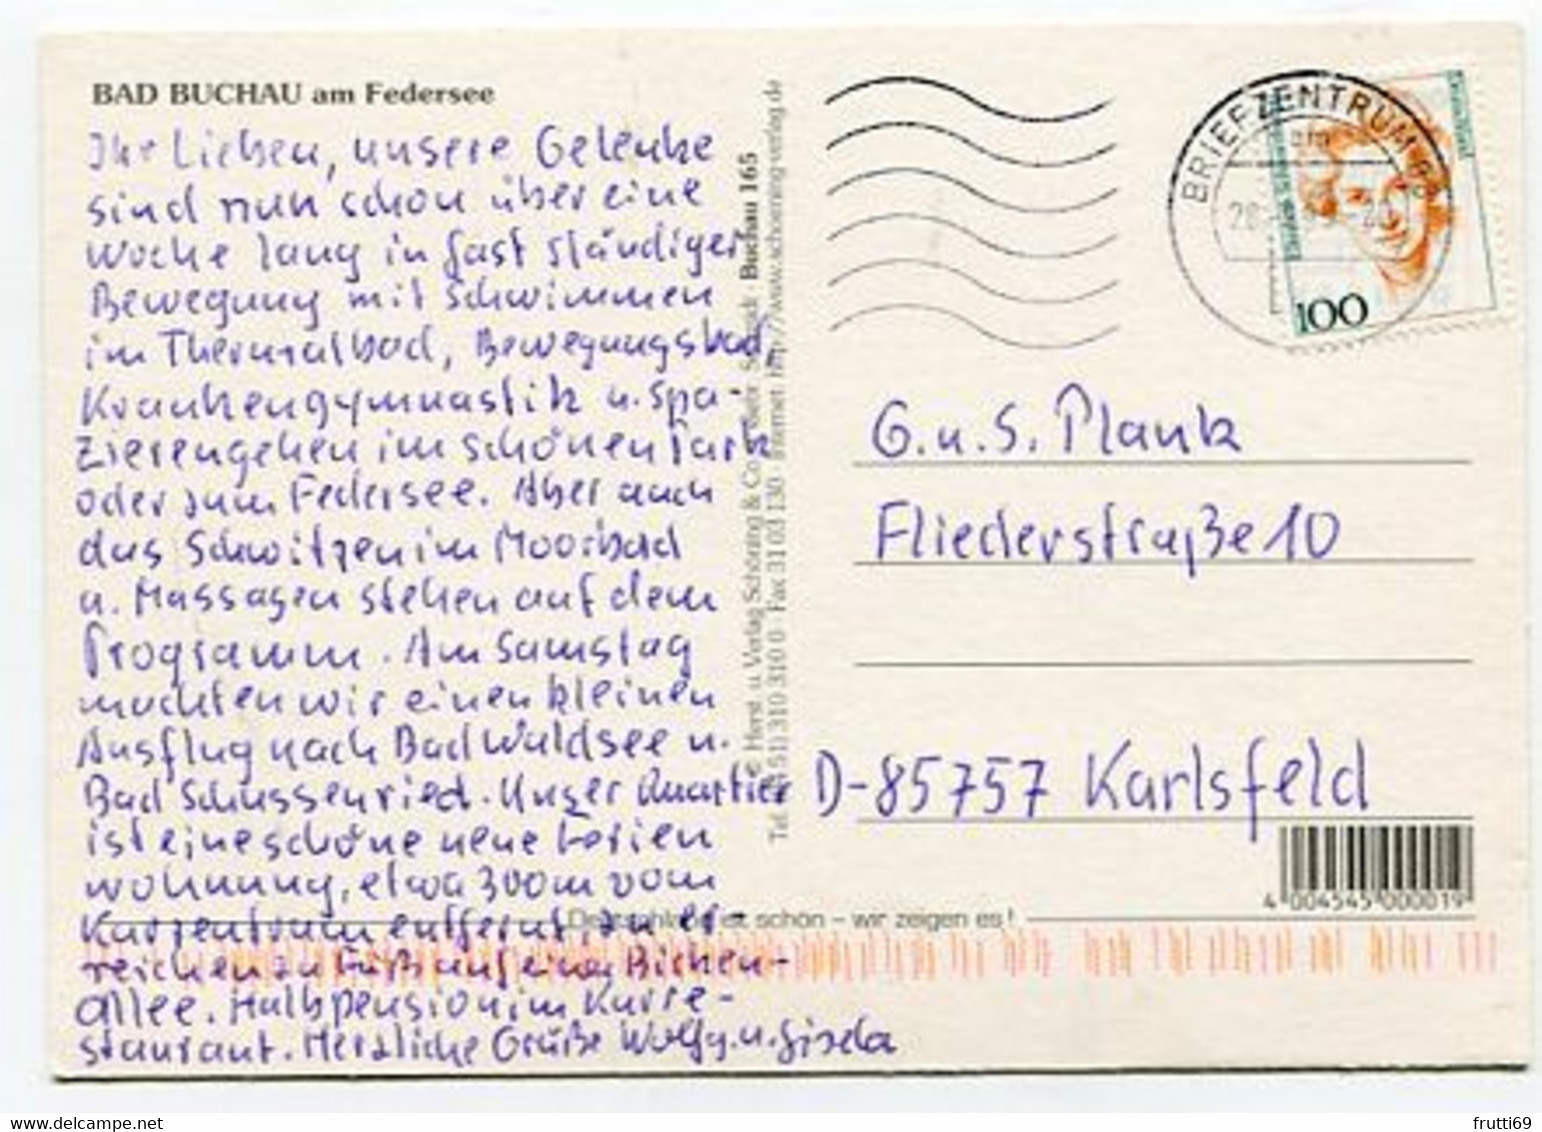 BAD BUCHAU am Federsee
Ihr Lieben, unsere Gelenke
sind nun schon über eine
Woche lang in fast ständiger
Bewegung mit Schwimmen
im Thermalbad, Bewegungsbad,
Krankengymnastik u. Spa-
zierengehen im schönen Park
oder zum Federsee. Aber auch
das Schwitzen im Moorbad
u. Massagen stehen auf dem
Programm. Am Samstag
machten wir einen kleinen
Ausflug nach Bad Waldsee u.
Bad Schussenried. Unser Quartier
ist eine schöne neue Ferien
wohnung, etwa 300m vom
Kurzentrum entfernt, zu er-
reichen zu Fuß auf einer Birken-
allee. Halbpension im Kurre-
staurant. Herzliche Grüße Wolfg. u. Gisela
© Herst. u. Verlag Schöning & Co. Buchau 165
310 310 0 · Fax 31 03 130 · Internet: http://www.schoening-verlag.de
Deutschland ist schön – wir zeigen es!
BRIEFZENTRUM
100
G. u. S. Plank
Fliederstraße 10
D-85757 Karlsfeld
4 004545 000019
frutti69